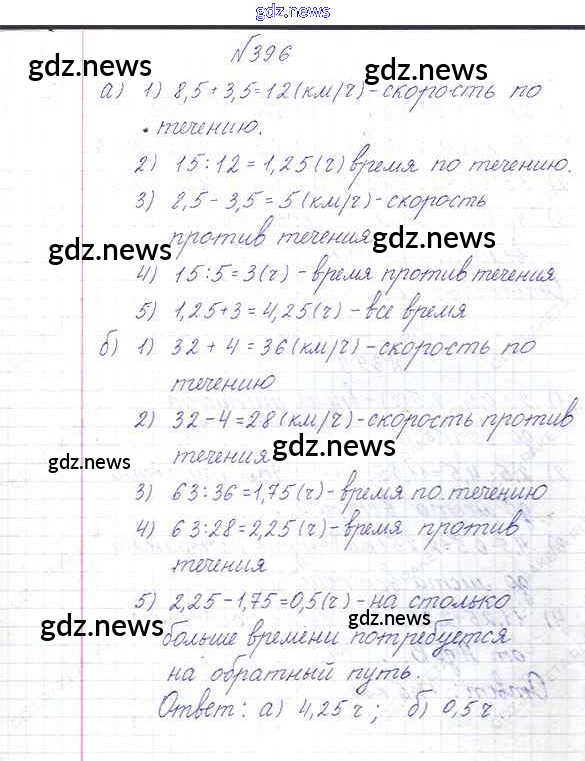 gdz.news
№396
gdz.news gdz.news
а) 1) 8,5+3,5=12(км/ч)-скорость по
течению.
2) 15:12=1,25(ч) время по течению.
3) 8,5-3,5=5(км/ч)-скорость
против течения
gdz.news gdz.news
4) 15:5=3(ч)-время против течения
5) 1,25+3=4,25(ч)-все время
б) 1) 32+4=36(км/ч)-скорость по
течению
2) 32-4=28(км/ч)-скорость против
течения
gdz.news gdz.news
3) 63:36=1,75(ч)-время по течению
4) 63:28=2,25(ч)-время против
течения
5) 2,25-1,75=0,5(ч)-на столько
gdz.news gdz.news
больше времени потребуется
на обратный путь.
Ответ: а) 4,25ч; б) 0,5ч.
gdz.news gdz.news